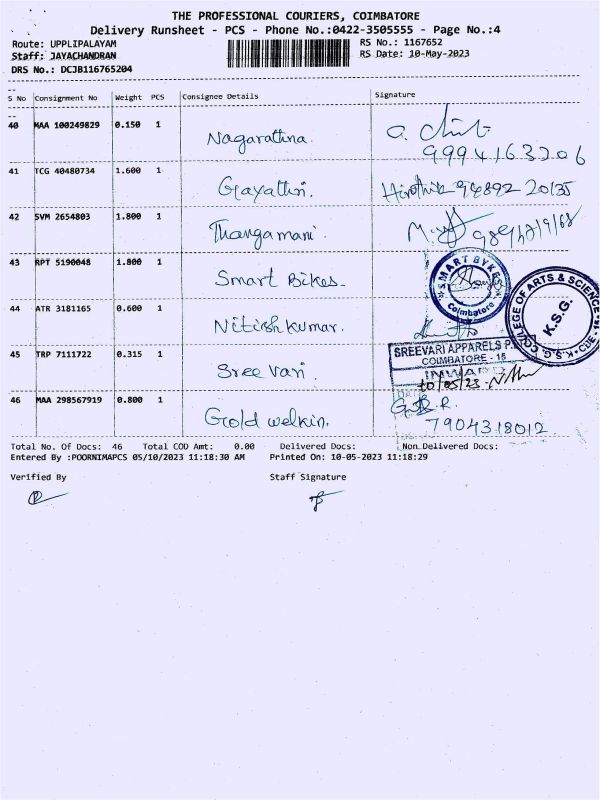 THE PROFESSIONAL COURIERS, COIMBATORE
Delivery Runsheet - PCS - Phone No.:0422-3505555 - Page No.:4
Route: UPPLIPALAYAM RS No.: 1167652
Staff: JAYACHANDRAN RS Date: 10-May-2023
DRS No.: DCJB116765204
S No Consignment No Weight PCS Consignee Details Signature
40 MAA 100249829 0.150 1 Nagarathna
9994163206
41 TCG 40480734 1.600 1 Gayathri. 94892 20135
42 SVM 2654803 1.800 1 Thangamani
43 RPT 5190048 1.800 1 Smart Bikes
SMART BYKES
Coimbatore
44 ATR 3181165 0.600 1 Nitish kumar.
K.S.G. COLLEGE OF ARTS & SCIENCE
K.S.G.
45 TRP 7111722 0.315 1 Sree Vari
SREEVARI APPARELS P.
COIMBATORE - 15
INWARD
10/05/23
46 MAA 298567919 0.800 1 Gold welkin.
7904318012
Total No. Of Docs: 46 Total COD Amt: 0.00 Delivered Docs: Non Delivered Docs:
Entered By :POORNIMAPCS 05/10/2023 11:18:30 AM Printed On: 10-05-2023 11:18:29
Verified By Staff Signature